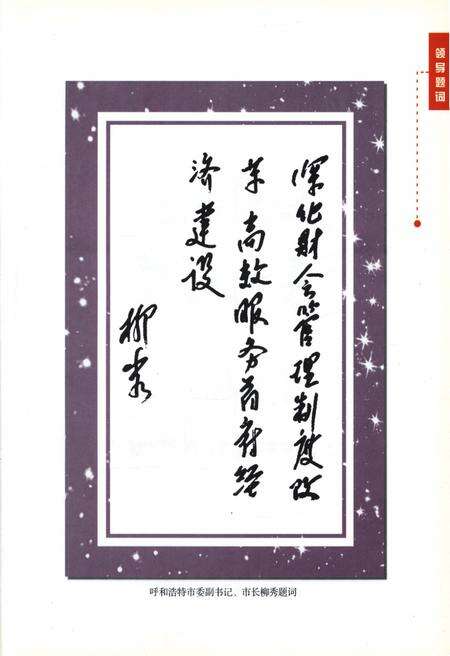 领导题词
深化财会管理制度改
革 高效服务首府经
济建设
柳秀
呼和浩特市委副书记、市长柳秀题词